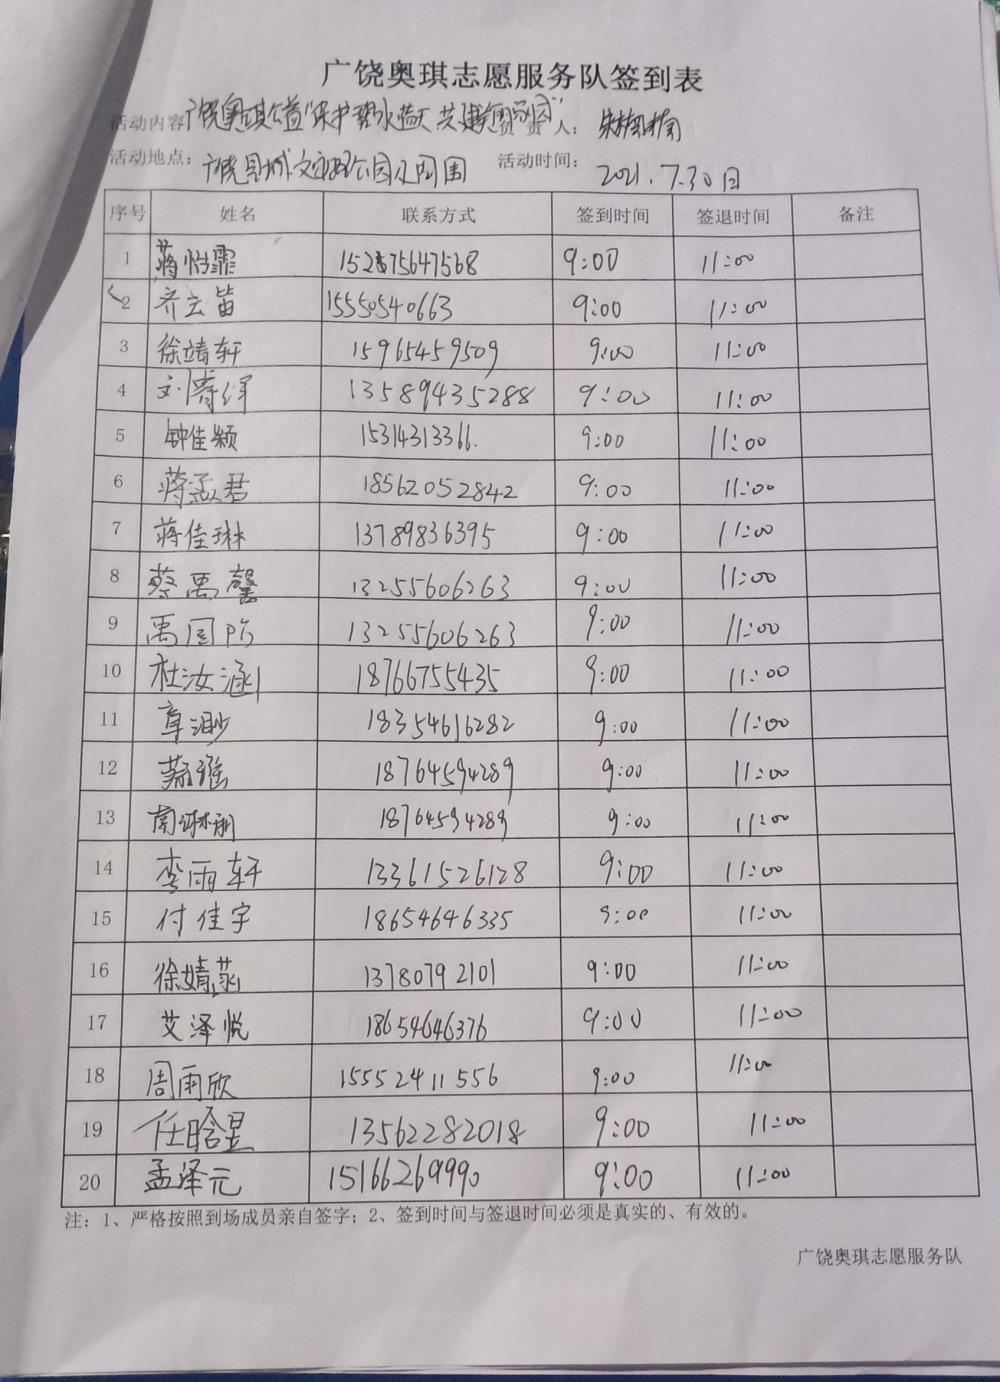 广饶奥琪志愿服务队签到表
活动内容 广饶奥琪公益"保护碧水蓝天 共建美丽家园" 负责人：
活动地点： 广饶县城 公园及周围 活动时间： 2021.7.30日
序号 姓名 联系方式 签到时间 签退时间 备注
1 蒋怡霏 15275647568 9:00 11:00
2 齐云笛 15550540663 9:00 11:00
3 徐靖轩 15965459509 9:00 11:00
4 刘 13589435288 9:00 11:00
5 钟佳颖 15314313366. 9:00 11:00
6 蒋孟君 18562052842 9:00 11:00
7 蒋佳琳 13789836395 9:00 11:00
8 蔡禹馨 13255606263 9:00 11:00
9 禹国 13255606263 9:00 11:00
10 杜汝涵 18766755435 9:00 11:00
11 章渺 18354616282 9:00 11:00
12 18764594289 9:00 11:00
13 南琳玥 18764594289 9:00 11:00
14 李雨轩 13361526128 9:00 11:00
15 付佳宇 18654646335 9:00 11:00
16 徐婧菡 13780792101 9:00 11:00
17 艾泽悦 18654646376 9:00 11:00
18 周雨欣 15552411556 9:00 11:00
19 任晗昱 13562282018 9:00 11:00
20 孟泽元 15166269990 9:00 11:00
注：1、严格按照到场成员亲自签字；2、签到时间与签退时间必须是真实的、有效的。
广饶奥琪志愿服务队